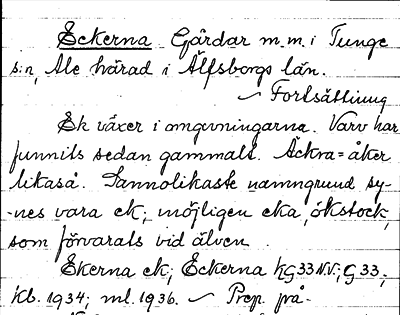 Eckerna Gårdar m.m. i Tunge
s:n, Ale härad i Älfsborgs län.
~ Fortsättning
Ek växer i omgivningarna. Varv har
funnits sedan gammalt. Äckra = åker
likaså. Sannolikaste namngrund sy-
-nes vara ek; möjligen eka, ökstock,
som förvarats vid älven.
Ekerna ek; Eckerna hG33NV; G33;
Kb. 1934; ml. 1936. ~ Prep. på.